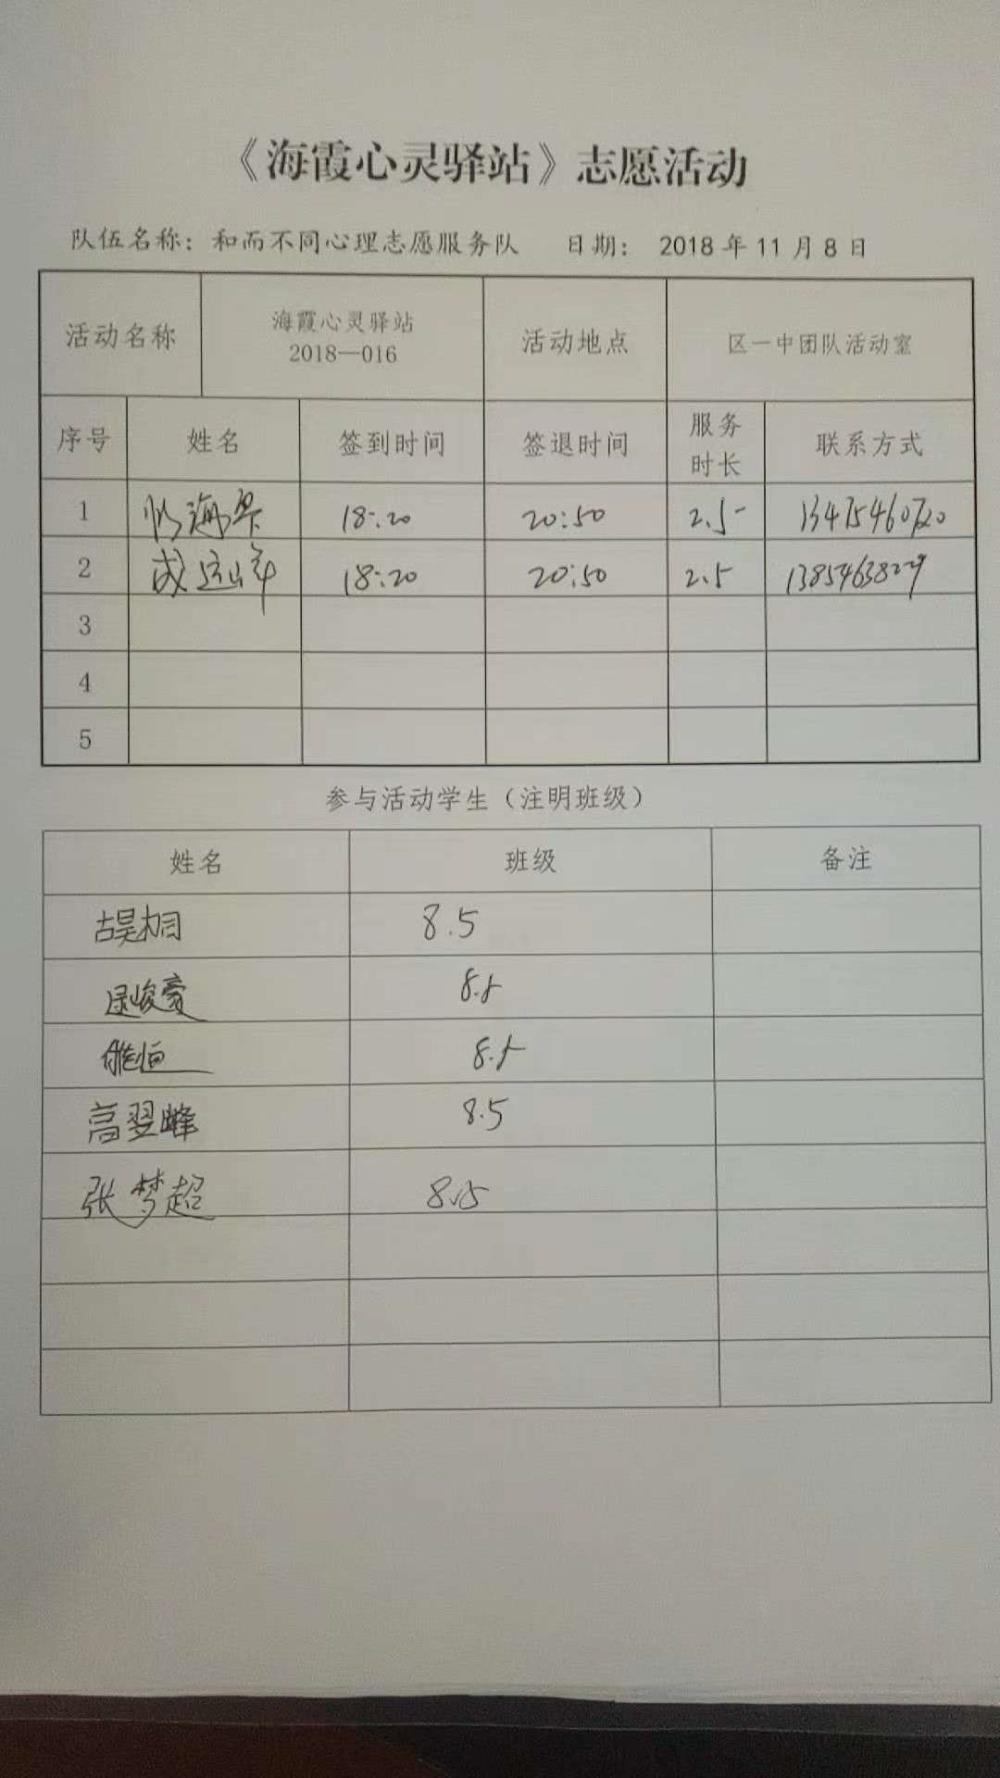 《海霞心灵驿站》志愿活动
队伍名称：和而不同心理志愿服务队 日期： 2018 年 11 月 8 日
活动名称 海霞心灵驿站 2018—016 活动地点 区一中团队活动室
序号 姓名 签到时间 签退时间 服务时长 联系方式
1 18:20 20:50 2.5
2 18:20 20:50 2.5
3
4
5
参与活动学生（注明班级）
姓名 班级 备注
8.5
8.5
8.5
高翌峰 8.5
张梦超 8.5